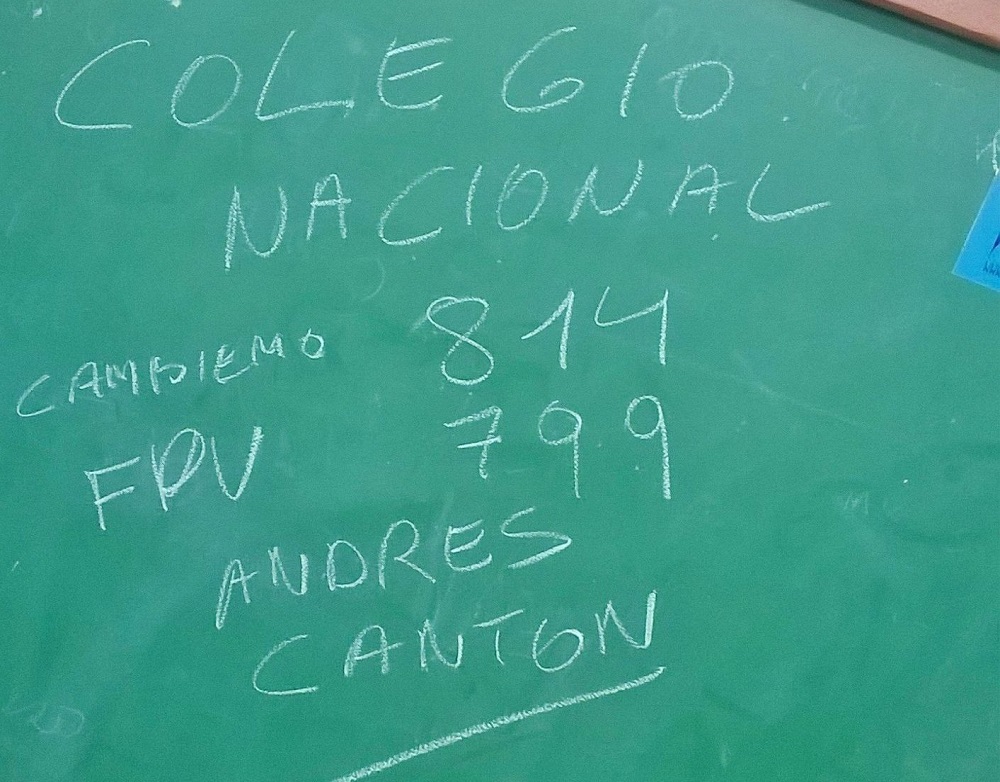 COLEGIO
NACIONAL
CAMBIEMO 814
FPV 799
ANDRES
CANTON